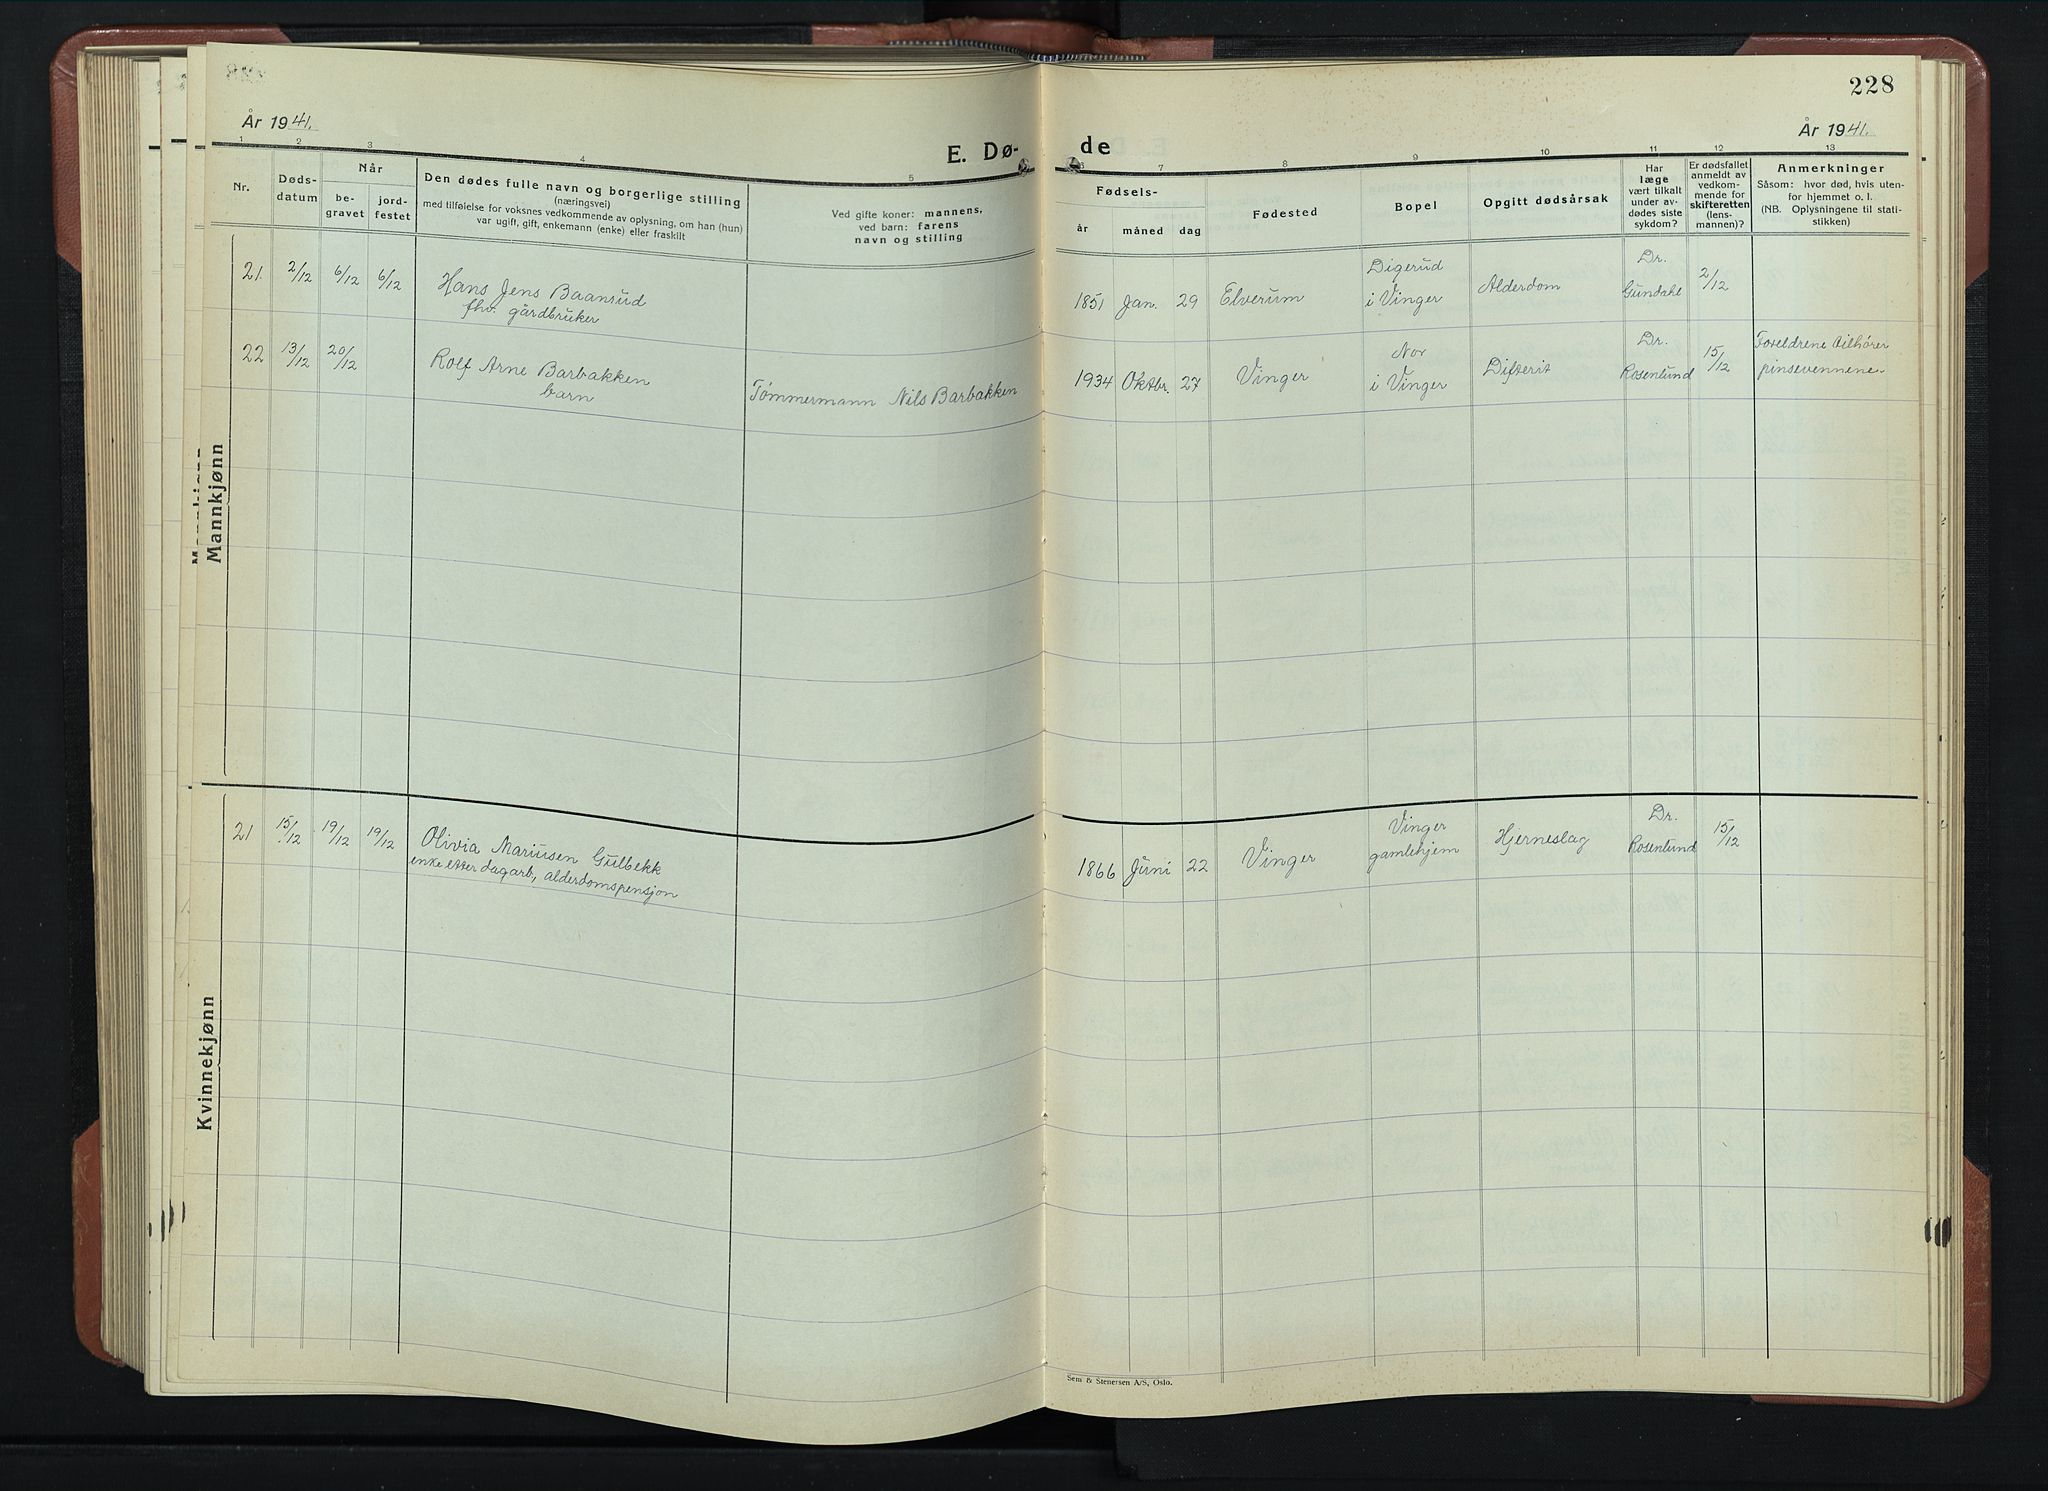 228
År 1941.
År 1941.
E. Dø-
de
1
2
3
4
5
6
7
8
9
10
11
12
13
Nr.
Døds-
datum
Når
be-
gravet
jord-
festet
Den dødes fulle navn og borgerlige stilling
(næringsvei)
med tilføielse for voksnes vedkommende av oplysning, om han (hun)
var ugift, gift, enkemann (enke) eller fraskilt
Ved gifte koner: mannens,
ved barn: farens
navn og stilling
Fødsels-
år
måned
dag
Fødested
Bopel
Opgitt dødsårsak
Har
læge
vært tilkalt
under av-
dødes siste
sykdom?
Er dødsfallet
anmeldt av
vedkom-
mende for
skifteretten
(lens-
mannen)?
Anmerkninger
Såsom: hvor død, hvis uten-
for hjemmet o. l.
(NB. Oplysningene til stati-
stikken)
Mannkjønn
21 2/12 6/12 6/12
Hans Jens Baansud
fhv. gårdbruker
1851 Jan. 29 Elverum
Digerud
i Vinger
Alderdom
Dr.
Gundahl
2/12
22 13/12 20/12
Rolf Arne Barbakken
barn
Tømmermann Nils Barbakken
1934 Oktbr. 27 Vinger
Nor
i Vinger
Difterit
Dr.
Rosenlund
15/12
Foreldrene tilhører
pinsevennene
Kvinnekjønn
21 15/12 19/12 19/12
Olivia Mariusen Gulbekk
enke etter dagarb., alderdomspensjon
1866 Juni 22 Vinger
Vinger
gamlehjem
Hjerneslag
Dr.
Rosenlund
15/12
Sem & Stenersen A/S, Oslo.